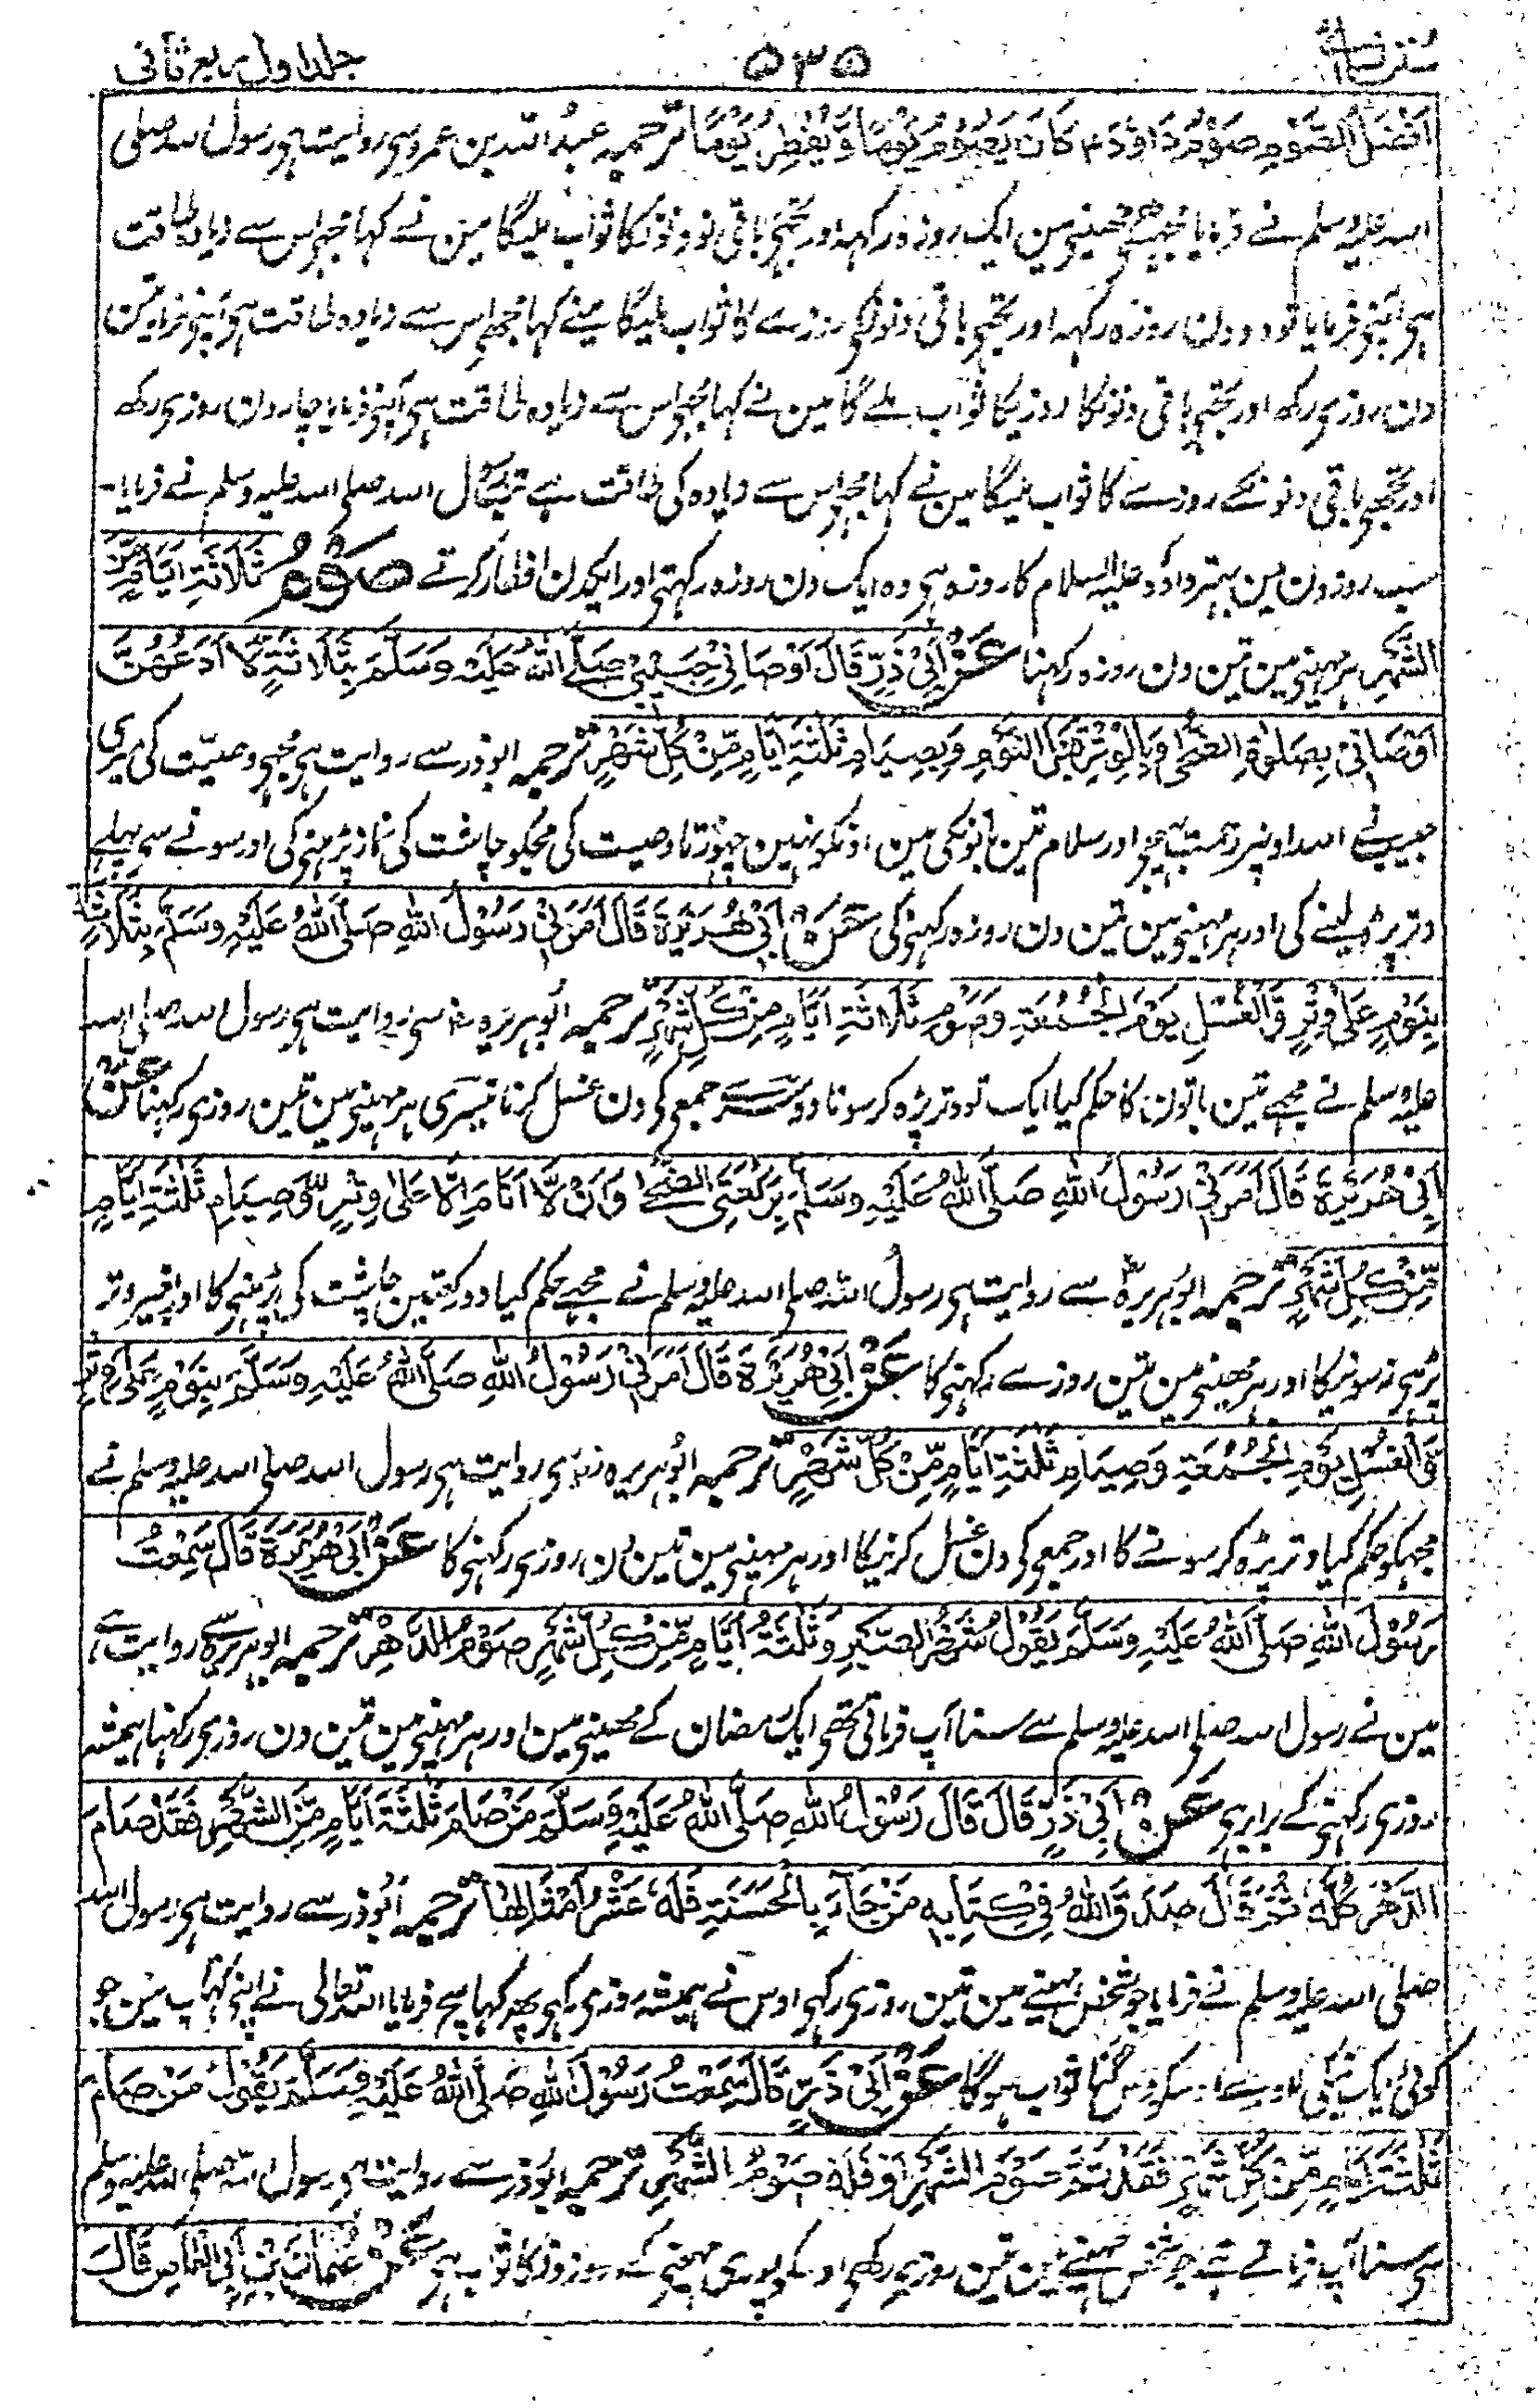 سنن نسائی ۵۳۵ جلد اول ربع ثانی
اَفْضَلُ الصَّوْمِ صَوْمُ دَاوٗدَ ۴ كَانَ يَصُوْمُ يَوْمًا وَّيُفْطِرُ يَوْمًا ترجمہ عبد اللہ بن عمرو سے روایت ہی رسول اللہ صلی
اللہ علیہ وسلم نے فرمایا مجھسے مہینے مین ایک روزہ رکہہ اور تجھے باقی نو دنونکا ثواب ملیگا مین نے کہا مجہے اس سے زیادہ طاقت
ہی آپنے فرمایا تو دو دن روزہ رکہہ اور تجہے باقی دنونکے روزے کا ثواب ملیگا مینے کہا مجھے اس سے زیادہ طاقت ہی آپنے فرمایا تین
دن روزی رکھ اور تجہے باقی دنونکا روزیکا ثواب ملے گا مین نے کہا مجہے اس سے زیادہ طاقت ہی آپنے فرمایا چار دن روزی رکھ
اور تجھے باقی دنونکے روزے کا ثواب ملیگا مین نے کہا مجہے اس سے زیادہ کی طاقت ہے تب رسول اللہ صلی اللہ علیہ وسلم نے فرمایا۔
سب روزون مین بہتر داؤد علیہ السلام کا روزہ ہی وہ ایک دن روزہ رکہتے اور ایکدن افطار کرتے صَوْمُ ثَلَاثَةِ اَيَّامٍ مِّنَ
الشَّهْرِ ہر مہینے مین تین دن روزہ رکہنا عَنْ اَبِیْ ذَرٍّ قَالَ اَوْصَانِیْ حَبِيْبِیْ صَلَّى اللهُ عَلَيْهِ وَسَلَّمَ بِثَلَاثَةٍ لَّا اَدَعُهُنَّ
اَوْصَانِیْ بِصَلٰوةِ الضُّحٰى وَبِالْوِتْرِ قَبْلَ النَّوْمِ وَبِصِيَامِ ثَلٰثَةِ اَيَّامٍ مِّنْ كُلِّ شَهْرٍ ترجمہ ابوذر سے روایت ہی مجہے وصیت کی میری
حبیب نے اللہ اونپر رحمت بھیجے اور سلام تین باتونکی مین اونکو نہین چہوڑتا وصیت کی مجکو چاشت کی نماز پڑہنے کی اور سونے سے پہلے
وتر پڑہ لینے کی اور ہر مہینے مین تین دن روزہ رکہنے کی عَنْ اَبِیْ هُرَيْرَةَ قَالَ اَمَرَنِیْ رَسُوْلُ اللهِ صَلَّى اللهُ عَلَيْهِ وَسَلَّمَ بِثَلَاثٍ
بِنَوْمٍ عَلٰى وِتْرٍ وَّالْغُسْلِ يَوْمَ الْجُمُعَةِ وَصَوْمِ ثَلَاثَةِ اَيَّامٍ مِنْ كُلِّ شَهْرٍ ترجمہ ابوہریرہ رض سے روایت ہی رسول اللہ صلی اللہ
علیہ وسلم نے مجہے تین باتون کا حکم کیا ایک تو وتر پڑہ کر سونا دوسرے جمعے کی دن غسل کرنا تیسری ہر مہینے مین تین روزے رکہنا عَنْ
اَبِیْ هُرَيْرَةَ قَالَ اَمَرَنِیْ رَسُوْلُ اللهِ صَلَّى اللهُ عَلَيْهِ وَسَلَّمَ بِرَكْعَتَیِ الضُّحٰى وَاَنْ لَّا اَنَامَ اِلَّا عَلٰى وِتْرٍ وَّصِيَامِ ثَلٰثَةِ اَيَّامٍ
مِّنْ كُلِّ شَهْرٍ ترجمہ ابوہریرہ سے روایت ہی رسول اللہ صلی اللہ علیہ وسلم نے مجہے حکم کیا دو رکعتین چاشت کی پڑہنے کا اور بغیر وتر
پڑہے نہ سونیکا اور ہر مہینے مین تین روزے رکہنے کا عَنْ اَبِیْ هُرَيْرَةَ قَالَ اَمَرَنِیْ رَسُوْلُ اللهِ صَلَّى اللهُ عَلَيْهِ وَسَلَّمَ بِنَوْمٍ عَلٰى وِتْرٍ
وَّالْغُسْلِ يَوْمَ الْجُمُعَةِ وَصِيَامِ ثَلٰثَةِ اَيَّامٍ مِّنْ كُلِّ شَهْرٍ ترجمہ ابوہریرہ رض سے روایت ہی رسول اللہ صلی اللہ علیہ وسلم نے
مجہکو حکم کیا وتر پڑہ کر سونے کا اور جمعے کی دن غسل کرنیکا اور ہر مہینے مین تین دن روزی رکہنے کا عَنْ اَبِیْ هُرَيْرَةَ قَالَ سَمِعْتُ
رَسُوْلَ اللهِ صَلَّى اللهُ عَلَيْهِ وَسَلَّمَ يَقُوْلُ شَهْرُ الصَّبْرِ وَثَلٰثَةُ اَيَّامٍ مِّنْ كُلِّ شَهْرٍ صَوْمُ الدَّهْرِ ترجمہ ابوہریرہ سے روایت ہے
مین نے رسول اللہ صلی اللہ علیہ وسلم سے سنا آپ فرماتے تھے ایک رمضان کے مہینے مین اور ہر مہینے مین تین دن روزی رکہنا ہمیشہ
روزی رکہنے کے برابر ہی عَنْ اَبِیْ ذَرٍّ قَالَ قَالَ رَسُوْلُ اللهِ صَلَّى اللهُ عَلَيْهِ وَسَلَّمَ مَنْ صَامَ ثَلٰثَةَ اَيَّامٍ مِّنَ الشَّهْرِ فَقَدْ صَامَ
الدَّهْرَ كُلَّهٗ ثُمَّ قَالَ صَدَقَ اللهُ فِیْ كِتَابِهٖ مَنْ جَآءَ بِالْحَسَنَةِ فَلَهٗ عَشْرُ اَمْثَالِهَا ترجمہ ابوذر سے روایت ہی رسول اللہ
صلی اللہ علیہ وسلم نے فرمایا جو شخص مہینے مین تین روزی رکہے اوس نے ہمیشہ روزی رکہے پھر کہا سچ فرمایا اللہ تعالی نے اپنی کتاب مین جو
کوئی ایک نیکی لاوے اوسکو دس گنا ثواب ہوگا عَنْ اَبِیْ ذَرٍّ قَالَ سَمِعْتُ رَسُوْلَ اللهِ صَلَّى اللهُ عَلَيْهِ وَسَلَّمَ يَقُوْلُ مَنْ صَامَ
ثَلٰثَةَ اَيَّامٍ مِّنْ كُلِّ شَهْرٍ فَقَدْ تَمَّ صَوْمُ الشَّهْرِ اَوْ فَلَهٗ صَوْمُ الشَّهْرِ ترجمہ ابوذر سے روایت ہی رسول اللہ صلی اللہ علیہ وسلم
سی سنا آپ فرماتے تہے جو شخص مہینے مین تین روزی رکھے اوسکو پوری مہینے کے روزونکا ثواب ہی عَنْ عُثْمَانَ بْنِ اَبِی الْعَاصِ قَالَ